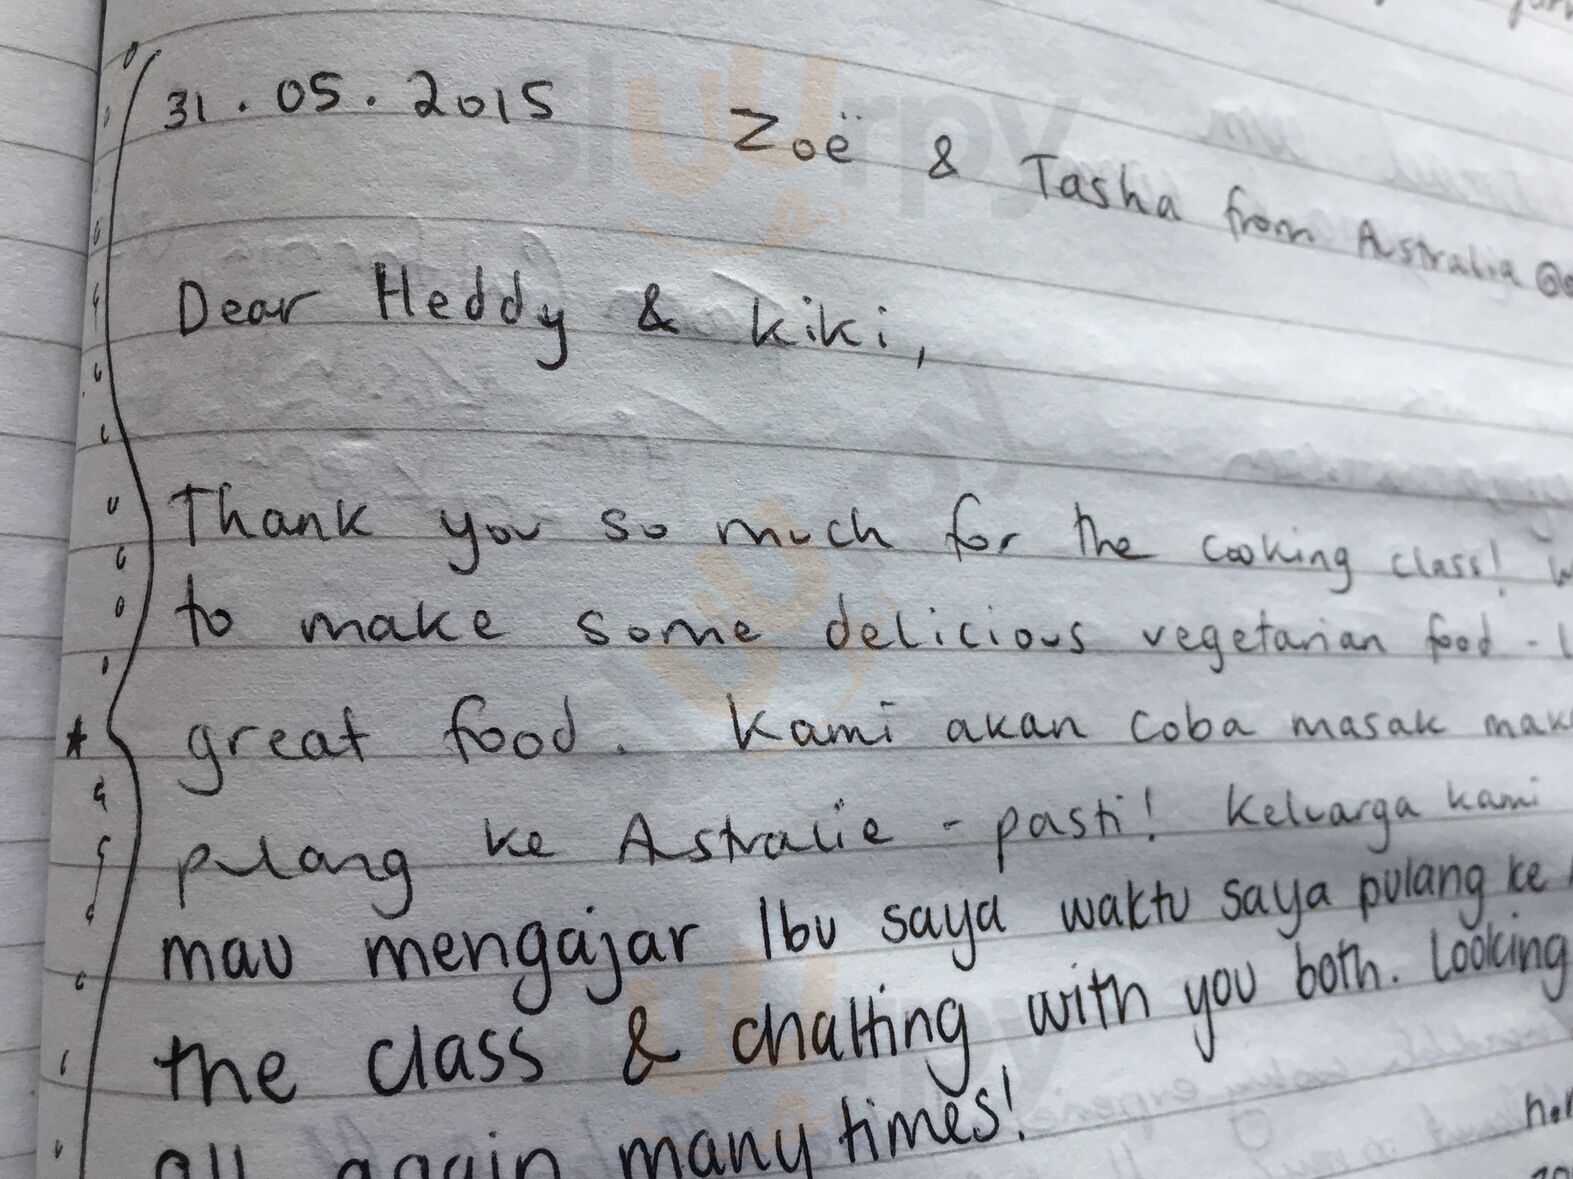 31.05.2015
Zoë & Tasha from Australia
Dear Heddy & Kiki,
Thank you so much for the cooking class!
to make some delicious vegetarian food -
great food. Kami akan coba masak
pulang ke Astralie - pasti! Keluarga kami
mau mengajar Ibu saya waktu saya pulang ke
the class & chatting with you both. Looking
all again many times!
sluurpy